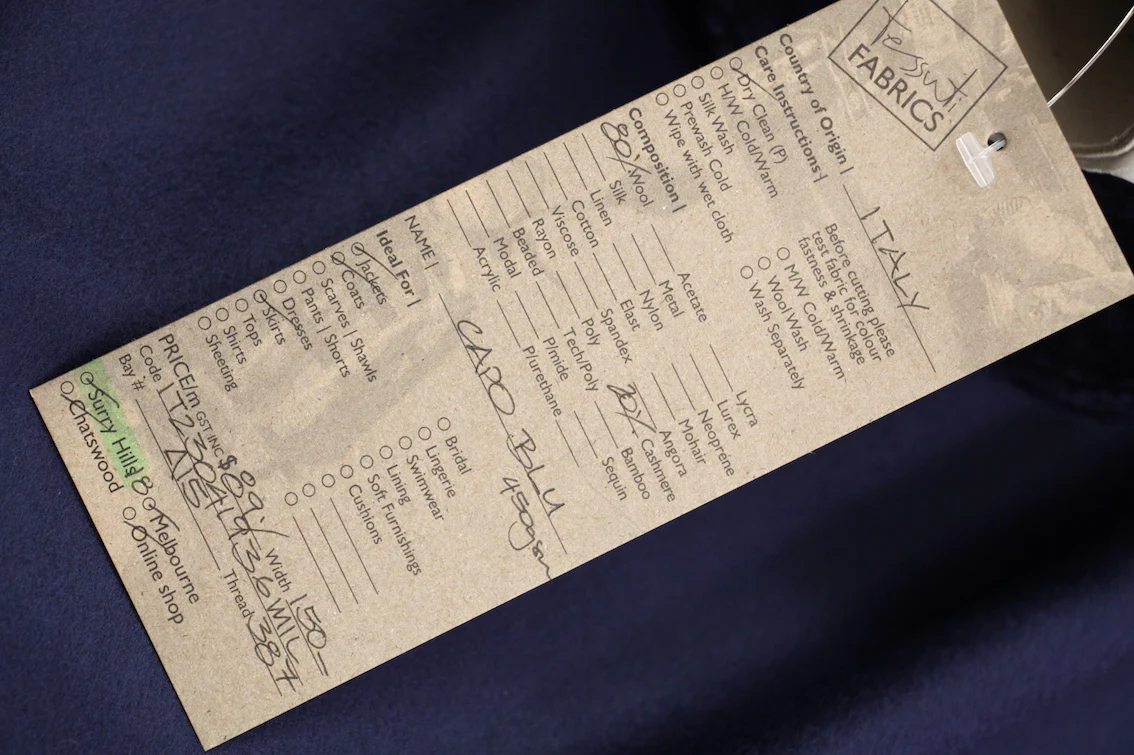 Tessuti
FABRICS
Country of Origin | ITALY
Care Instructions |
Dry Clean (P)
H/W Cold/Warm
Silk Wash
Prewash Cold
Wipe with wet cloth
Before cutting please
test fabric for colour
fastness & shrinkage
M/W Cold/Warm
Wool Wash
Wash Separately
Composition |
80% Wool
Silk
Linen
Cotton
Viscose
Rayon
Beaded
Modal
Acrylic
Acetate
Metal
Nylon
Elast
Spandex
Poly
Tech/Poly
P/mide
P/urethane
Lycra
Lurex
Neoprene
Mohair
Angora
20% Cashmere
Bamboo
Sequin
NAME | CAPO BLU
450gsm
Ideal For |
Jackets
Coats
Scarves | Shawls
Pants | Shorts
Dresses
Skirts
Tops
Shirts
Sheeting
Bridal
Lingerie
Swimwear
Lining
Soft Furnishings
Cushions
PRICE/m GST INC $89 Width 150
Code |
Bay # A15 Thread 387
Surry Hills Melbourne
Chatswood Online shop